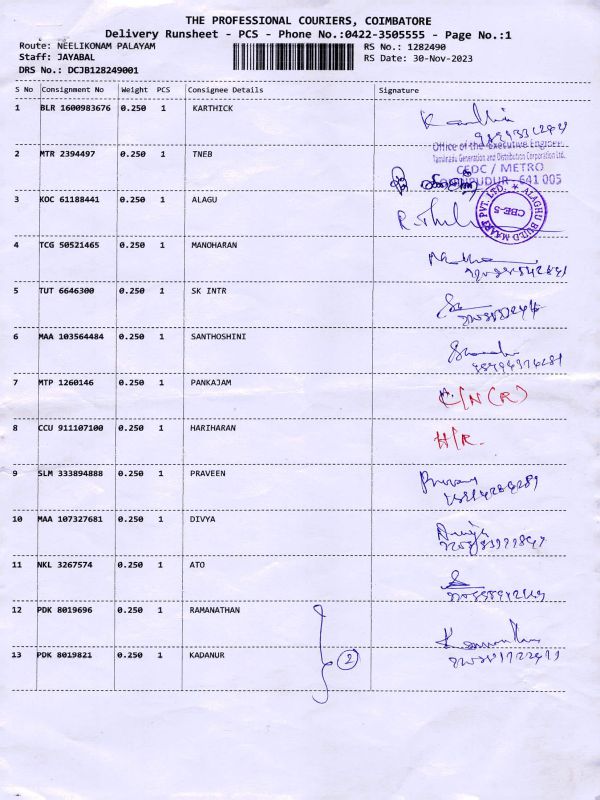 THE PROFESSIONAL COURIERS, COIMBATORE
Delivery Runsheet - PCS - Phone No.:0422-3505555 - Page No.:1
Route: NEELIKONAM PALAYAM RS No.: 1282490
Staff: JAYABAL RS Date: 30-Nov-2023
DRS No.: DCJB128249001
S No Consignment No Weight PCS Consignee Details Signature
1 BLR 1600983676 0.250 1 KARTHICK
Office of the Executive Engineer
2 MTR 2394497 0.250 1 TNEB
Tamilnadu Generation and Distribution Corporation Ltd.
CEDC / METRO
641 005
3 KOC 61188441 0.250 1 ALAGU
ALAGHU BUILD MAART PVT. LTD. ★
CBE-5
4 TCG 50521465 0.250 1 MANOHARAN
5 TUT 6646300 0.250 1 SK INTR
6 MAA 103564484 0.250 1 SANTHOSHINI
7 MTP 1260146 0.250 1 PANKAJAM /N(R)
8 CCU 911107100 0.250 1 HARIHARAN H/R.
9 SLM 333894888 0.250 1 PRAVEEN
10 MAA 107327681 0.250 1 DIVYA
11 NKL 3267574 0.250 1 ATO
12 PDK 8019696 0.250 1 RAMANATHAN
13 PDK 8019821 0.250 1 KADANUR 2